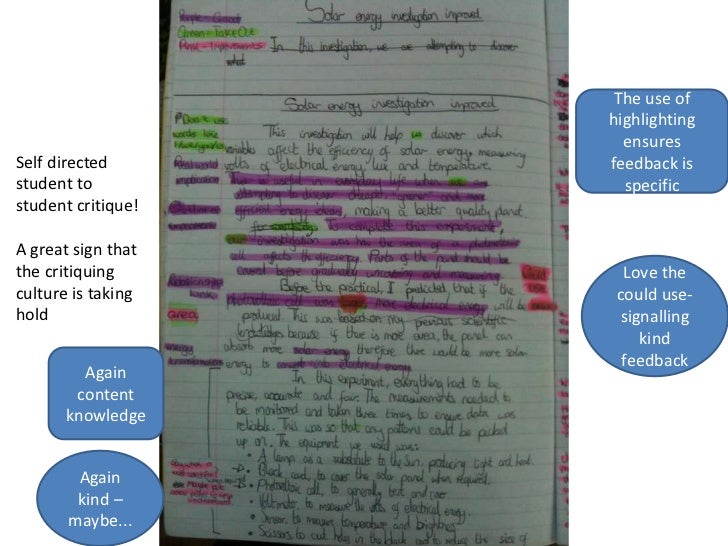 Purple - Good
Green - Take Out
Pink - Improvements
Solar energy investigation improved
In this investigation, we are attempting to discover
what
Solar energy investigation improved
Don't use
words like
This investigation will help us discover which
variables affect the efficiency of solar energy, measuring
Real world
implication
volts of electrical energy, lux and temperature.
This is useful in everyday life when we are
attempting to discover cheaper, greener and more
efficient energy ideas, making a better quality planet.
To complete this experiment,
our investigation was how the area of a photovoltaic
cell affects the efficiency. Parts of the panel should be
covered before gradually uncovering and measuring
Could
use
Before the practical, I predicted that if the
photovoltaic cell was larger, more electrical energy will be
area
produced. This was based on my previous scientific
knowledge because if there is more area, the panel can
energy
absorb more solar energy therefore there would be more solar
energy to convert into electrical energy.
In this experiment, everything had to be
precise, accurate and fair. The measurements needed to
be monitored and taken three times to ensure data was
reliable. This was so that any patterns could be picked
up on. The equipment we used was:
• A lamp as a substitute to the Sun, producing light and heat.
• Black card, to cover the solar panel when required.
• Photovoltaic cell, to generally test and cover
• Voltmeter, to measure the volts of electrical energy.
• Sensor to measure temperature and brightness
• Scissors to cut holes in the black card to reduce the size of
Self directed
student to
student critique!
A great sign that
the critiquing
culture is taking
hold
Again
content
knowledge
Again
kind –
maybe...
The use of
highlighting
ensures
feedback is
specific
Love the
could use-
signalling
kind
feedback